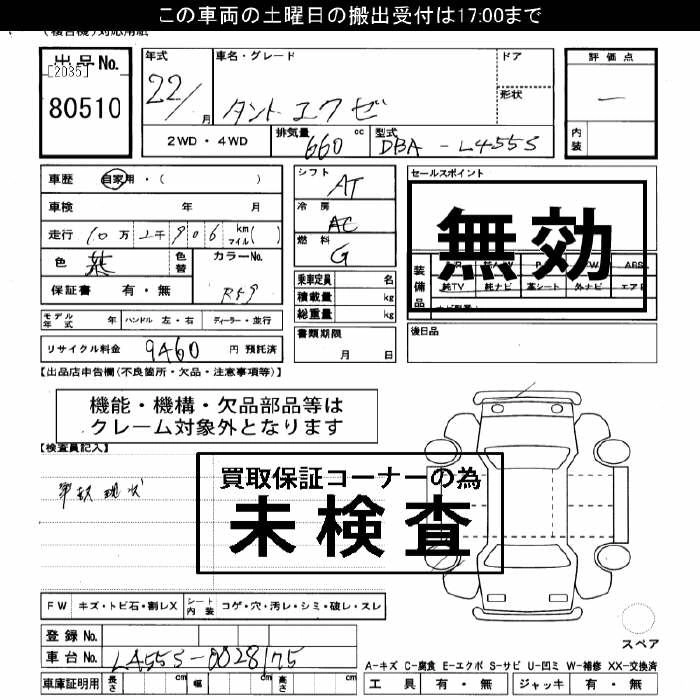 この車両の土曜日の搬出受付は17:00まで
出品No.
[2035]
80510
年式
22/
月
車名・グレード
タント エクゼ
ドア
形状
2WD・4WD
排気量
660
cc
型式
DBA-L455S
評価点
―
内装
車歴 自家用・( )
車検 年 月
走行 10万2千906 km マイル( )
色 紫 色替
カラーNo.
R59
保証書 有・無
モデル年式 年 ハンドル 左・右 ディーラー・並行
リサイクル料金 9460 円 預託済
シフト
AT
冷房
AC
燃料
G
乗車定員 名
積載量 kg
総重量 kg
書類期限
月 日
セールスポイント
無効
装備品
ABS
純TV 純ナビ 革シート 外ナビ
後日品
【出品店申告欄(不良箇所・欠品・注意事項等)】
機能・機構・欠品部品等は
クレーム対象外となります
【検査員記入】
事故現状
買取保証コーナーの為
未検査
FW キズ・トビ石・割レX シート内装 コゲ・穴・汚レ・シミ・破レ・スレ
登録No.
車台No. L455S-0028175
車庫証明用 長さ cm 幅 cm 高さ cm
スペア
A-キズ C-腐食 E-エクボ S-サビ U-凹ミ W-補修 XX-交換済
工具 有・無 ジャッキ 有・無